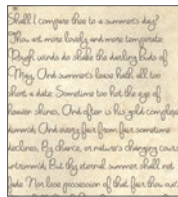 Shall I compare thee to a summer's day?
Thou art more lovely and more temperate:
Rough winds do shake the darling buds of
May, And summer's lease hath all too
short a date: Sometime too hot the eye of
heaven shines, And often is his gold complexion
dimm'd; And every fair from fair sometime
declines, By chance, or nature's changing course,
untrimm'd; But thy eternal summer shall not
fade Nor lose possession of that fair thou owe